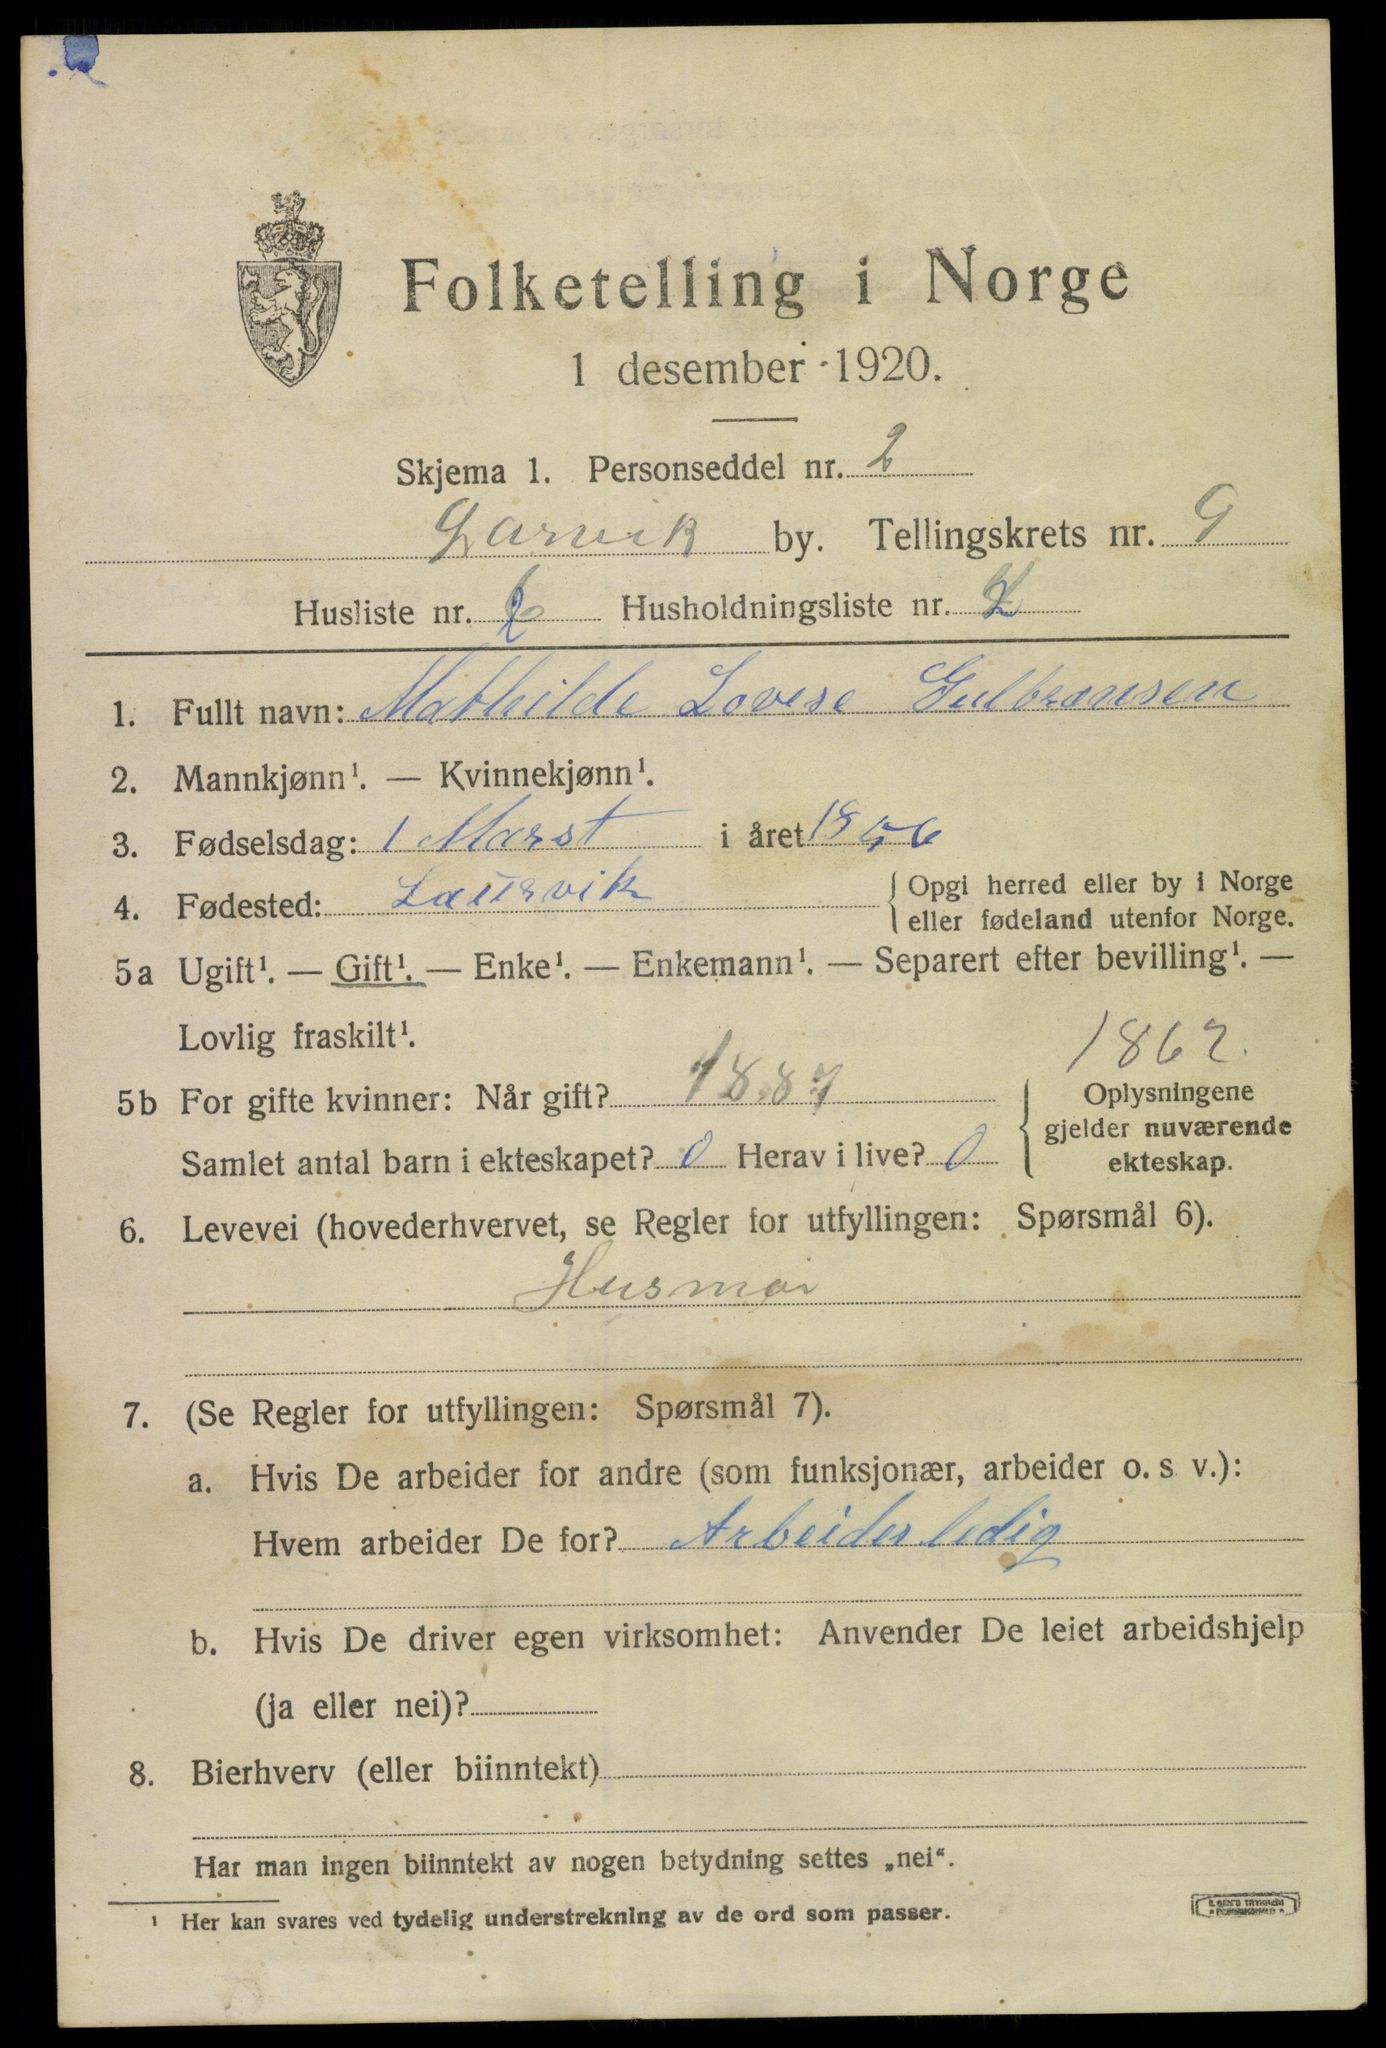 Folketelling i Norge
1 desember 1920.
Skjema 1. Personseddel nr. 2
Larvik by. Tellingskrets nr. 9
Husliste nr. Husholdningsliste nr. 2
1. Fullt navn: Mathilde Lovise Gulbransen
2. Mannkjønn¹. — Kvinnekjønn¹.
3. Fødselsdag: 1 Marst i året 1856
4. Fødested: Laurvik {Opgi herred eller by i Norge
eller fødeland utenfor Norge.
5a Ugift¹. — Gift¹. — Enke¹. — Enkemann¹. — Separert efter bevilling¹. —
Lovlig fraskilt¹.
1862.
5b For gifte kvinner: Når gift? 1887
Samlet antal barn i ekteskapet? 0 Herav i live? 0
{Oplysningene
gjelder nuværende
ekteskap.
6. Levevei (hovederhvervet, se Regler for utfyllingen: Spørsmål 6).
Husmor
7. (Se Regler for utfyllingen: Spørsmål 7).
a. Hvis De arbeider for andre (som funksjonær, arbeider o. s v.):
Hvem arbeider De for? Arbeider ledig
b. Hvis De driver egen virksomhet: Anvender De leiet arbeidshjelp
(ja eller nei)?
8. Bierhverv (eller biinntekt)
Har man ingen biinntekt av nogen betydning settes „nei“.
¹ Her kan svares ved tydelig understrekning av de ord som passer.